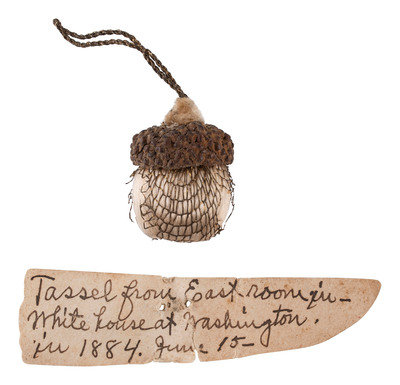 Tassel from East room in-
White house at Washington.
in 1884. June 15-